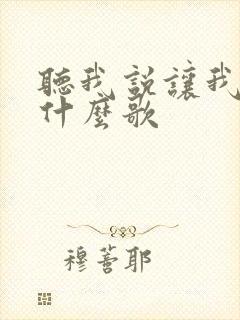 聽我說讓我
什麼歌
穆薈耶